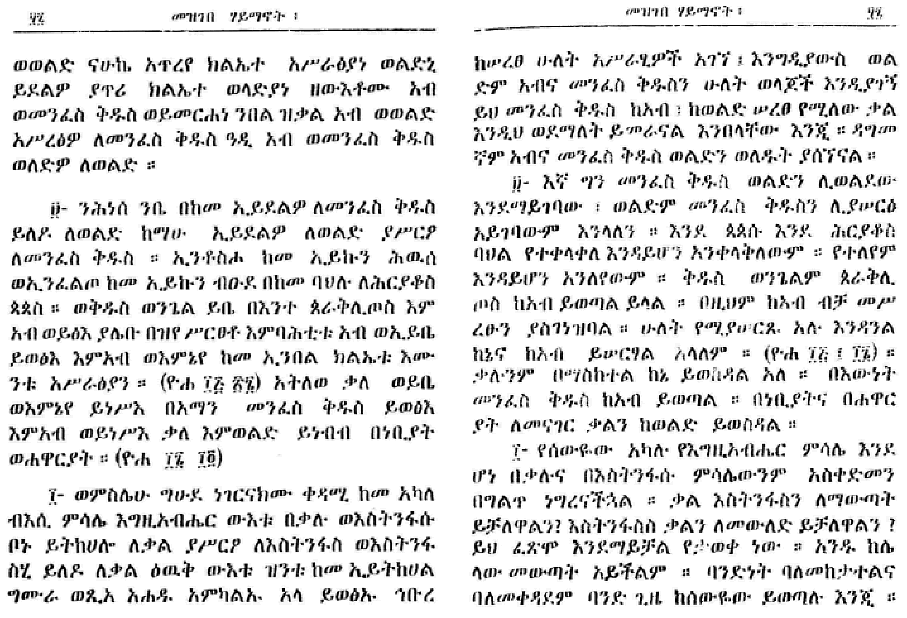 ፶፯ መዝገበ ሃይማኖት ፡
ወወልድ ናሁኬ አጥረየ ክልኤተ አሥራፅያነ ወልድኒ
ይደልዎ ያጥሪ ክልኤተ ወላድያነ ዘውእቶሙ አብ
ወመንፈስ ቅዱስ ወይመርሐነ ንበል ዝቃል አብ ወወልድ
አሥረፅዎ ለመንፈስ ቅዱስ ዓዲ አብ ወመንፈስ ቅዱስ
ወለድዎ ለወልድ ።
፱- ንሕነሰ ንቤ በከመ ኢይደልዎ ለመንፈስ ቅዱስ
ይለዶ ለወልድ ከማሁ ኢይደልዎ ለወልድ ያሥርፆ
ለመንፈስ ቅዱስ ። ኢንቶስሖ ከመ ኢይኩን ሕዉሰ
ወኢንፈልጦ ከመ ኢይኩን ብዑደ በከመ ባህሉ ለሕርያቆስ
ጳጳስ ። ወቅዱስ ወንጌል ይቤ በእንተ ጰራቅሊጦስ እም
አብ ወይፅእ ያሌቡ በዝየ ሥርፀቶ እምባሕቲቱ አብ ወኢይቤ
ይወፅእ እምአብ ወእምኔየ ከመ ኢንበል ክልኤቱ እሙ
ንቱ አሥራፅያን ። (ዮሐ ፲፭ ፳፯) አትለወ ቃለ ወይቤ
ወእምኔየ ይነሥእ በአማን መንፈስ ቅዱስ ይወፅእ
እምአብ ወይነሥእ ቃለ እምወልድ ይነብብ በነቢያት
ወሐዋርያት ። (ዮሐ ፲፯ ፲፬)
፲- ወምስሌሁ ግሁደ ነገርናክሙ ቀዳሚ ከመ አካለ
ብእሲ ምሳሌ እግዚአብሔር ውእቱ በቃሉ ወእስትንፋሱ
ቦኑ ይትከሀሎ ለቃል ያሥርፆ ለእስትንፋስ ወእስትንፋ
ስሂ ይለዶ ለቃል ዕዉቅ ውእቱ ዝንቱ ከመ ኢይትከሀል
ግሙራ ወጺአ አሐዱ እምካልኡ አላ ይወፅኡ ኅቡረ
መዝገበ ሃይማኖት ፡ ፶፯
ከሠረፀ ሁለት አሥራፂዎች አገኘ ፤ እንግዲያውስ ወል
ድም አብና መንፈስ ቅዱስን ሁለት ወላጆች እንዲያገኝ
ይህ መንፈስ ቅዱስ ከአብ ፡ ከወልድ ሠረፀ የሚለው ቃል
እንዲህ ወደማለት ይመራናል እንበላቸው እንጂ ። ዳግመ
ኛም አብና መንፈስ ቅዱስ ወልድን ወለዱት ያሰኘናል ።
፱- እኛ ግን መንፈስ ቅዱስ ወልድን ሊወልደው
እንደማይገባው ፡ ወልድም መንፈስ ቅዱስን ሊያሠርፅ
አይገባውም እንላለን ። እንደ ጳጳሱ እንደ ሕርያቆስ
ባህል የተቀላቀለ እንዳይሆን አንቀላቅለውም ። የተለየም
እንዳይሆን አንለየውም ። ቅዱስ ወንጌልም ጰራቅሊ
ጦስ ከአብ ይወጣል ይላል ። በዚህም ከአብ ብቻ መሥ
ረፁን ያስገነዝባል ። ሁለት የሚያሠርጹ አሉ እንዳንል
ከኔና ከአብ ይሠርፃል አላለም ። (ዮሐ ፲፭ ፤ ፲፯) ።
ቃሉንም በማስከተል ከኔ ይወስዳል አለ ። በእውነት
መንፈስ ቅዱስ ከአብ ይወጣል ። በነቢያትና በሐዋር
ያት ለመናገር ቃልን ከወልድ ይወስዳል ።
፲- የሰውዬው አካሉ የእግዚአብሔር ምሳሌ እንደ
ሆነ በቃሉና በእስትንፋሱ ምሳሌውንም አስቀድመን
በግልጥ ነግረናችኋል ። ቃል እስትንፋስን ለማውጣት
ይቻለዋልን? እስትንፋስስ ቃልን ለመውለድ ይቻለዋልን ?
ይህ ፈጽሞ እንደማይቻል የታወቀ ነው ። አንዱ ከሌ
ላው መውጣት አይችልም ። ባንድነት ባለመከታተልና
ባለመቀዳደም ባንድ ጊዜ ከሰውዬው ይወጣሉ እንጂ ።